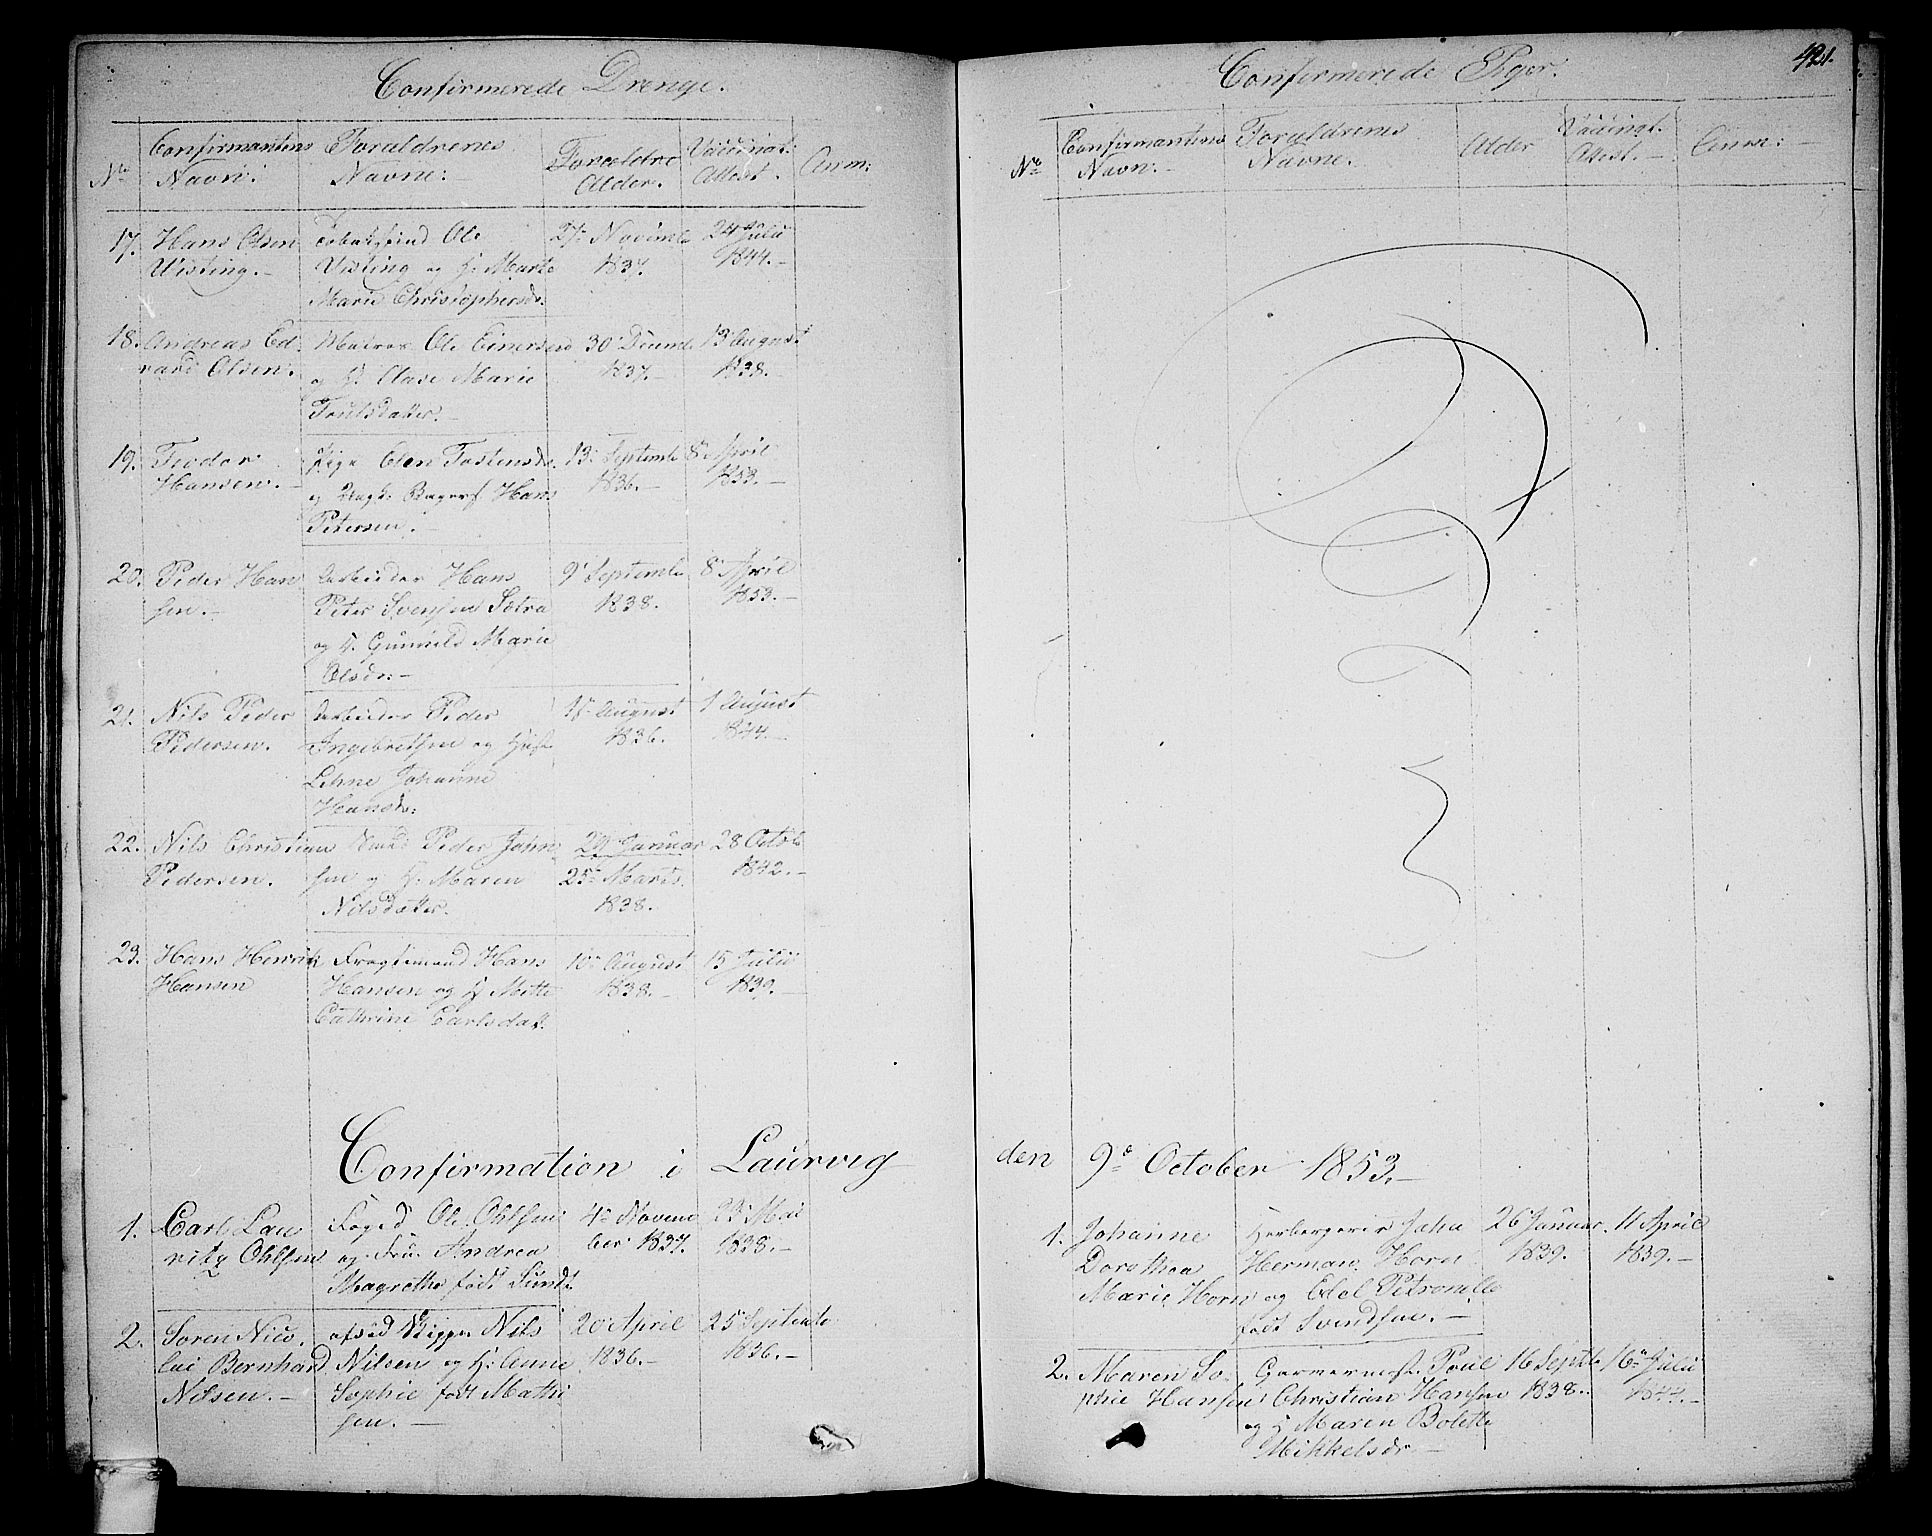 Confirmerede Drenge.
No
Confirmantens
Navn:
Forældrenes
Navne:
Alder.
Vaccinat:
Attest.
Anm:
17. Hans Olsen
Wisting.-
Ole
Wisting og H: Marte
Marie Christophersdr:
27 Novemb
1837.
24 Julii
1844.-
18. Andreas Ed-
vard Olsen.
Matros Ole Einersen
og H. Olase Marie
Poulsdatter.-
30 Decemb
1837.-
13 August
1838.-
19. Teodor
Hansen.-
Pige Olen Tostensdr.
og Ungk: Bagersv Hans
Petersen.-
13 Septemb
1836.-
8 April
1853.-
20. Peder Han
sen.-
Arbeider Hans
Peter Svensen Sætra
og H. Gunnild Marie
Olsdr:-
9 Septemb
1838.
8 April
1853.-
21. Nils Peder
Pedersen.
Arbeider Peder
Ingebretsen og Hust
Lehne Johanne
Hansdr:
17 August
1836.
1 August
1844.-
22. Nils Christian
Pedersen.
Peder John
sen og H: Maren
Nilsdatter.
29 Januar
25 Marts.
1838.
28 Octob
1842.-
23. Hans Henrik
Hansen
Fragtemand Hans
Hansen og H Mette
Cathrine Carlsdat.
10 August
1838.-
15 Julii
1839.-
Confirmation i Laurvig
1. Carl Lau
ritz Ohlsen
Foged Ole Ohlsen
og Fru Andrea
Magrethe født Sundt
4 Novem
ber 1837.
23 Mai
1838.-
2. Soren Nico
lai Bernhard
Nilsen.-
afsød Skipper Nils
Nilsen og H: Anne
Sophie født Mathi
sen.-
20 April
1836.-
25 Septemb
1836.-
Confirmerede Piger.
421.
No
Confirmantens
Navn:-
Forældrenes
Navne.
Alder
Vaccinat.
Attest.-
Anm:-
den 9de October 1853.-
1. Johanne
Dorothea
Marie Horn
Herbergerer John
Herman Horn
og Edel Petronelle
født Svendsen.-
26 Januar.
1839.
11 April
1839.-
2. Maren So-
phie Hansen
Garvermest. Poul
Christian Hansen
og H Maren Bolette
Mikkelsdr-
16 Septbr
1838.-
16 Julii
1844.-